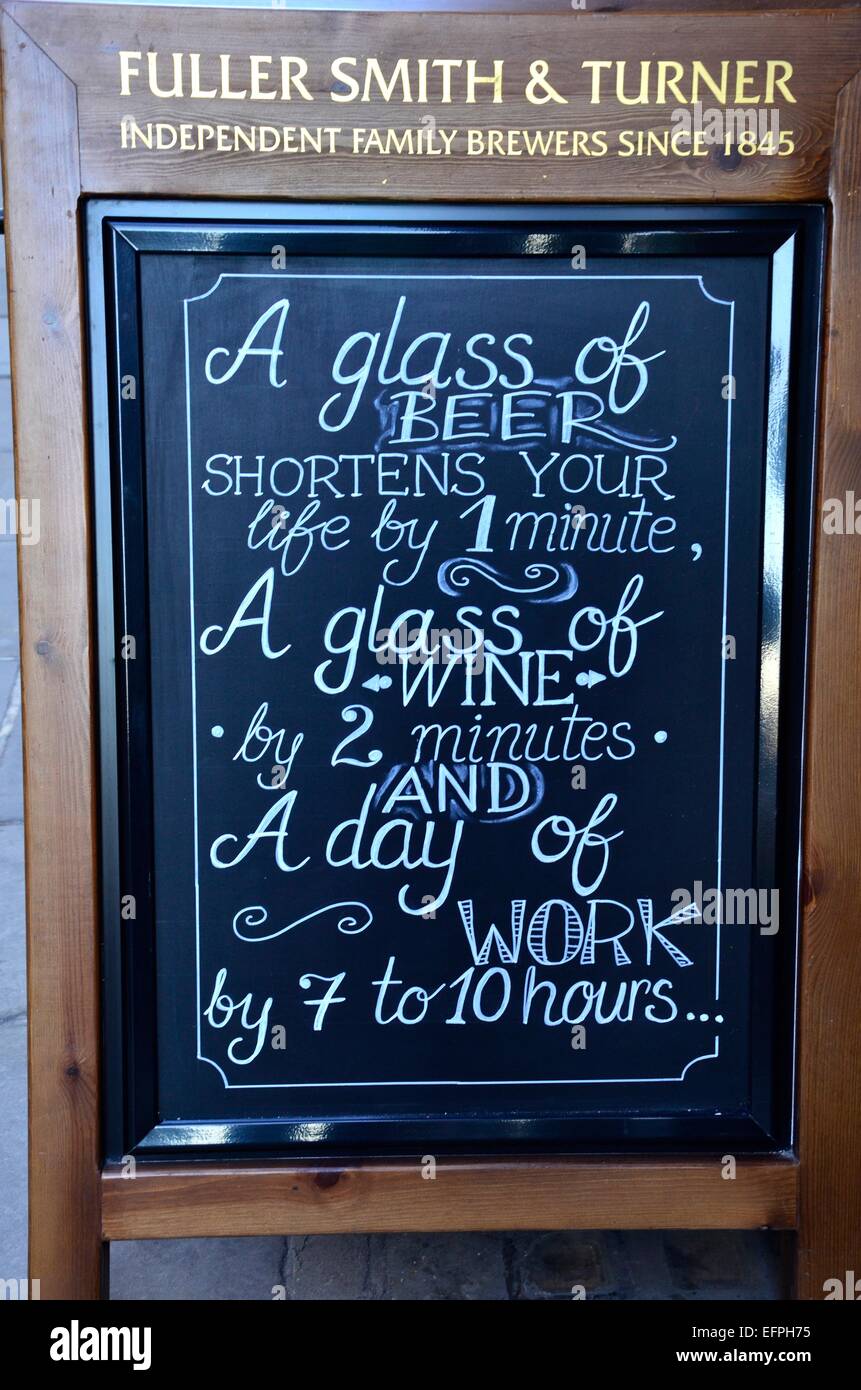 FULLER SMITH & TURNER
INDEPENDENT FAMILY BREWERS SINCE 1845
A glass of
BEER
SHORTENS YOUR
life by 1 minute,
A glass of
WINE
by 2 minutes
AND
A day of
WORK
by 7 to 10 hours...
alamy stock photo
EFPH75
www.alamy.com